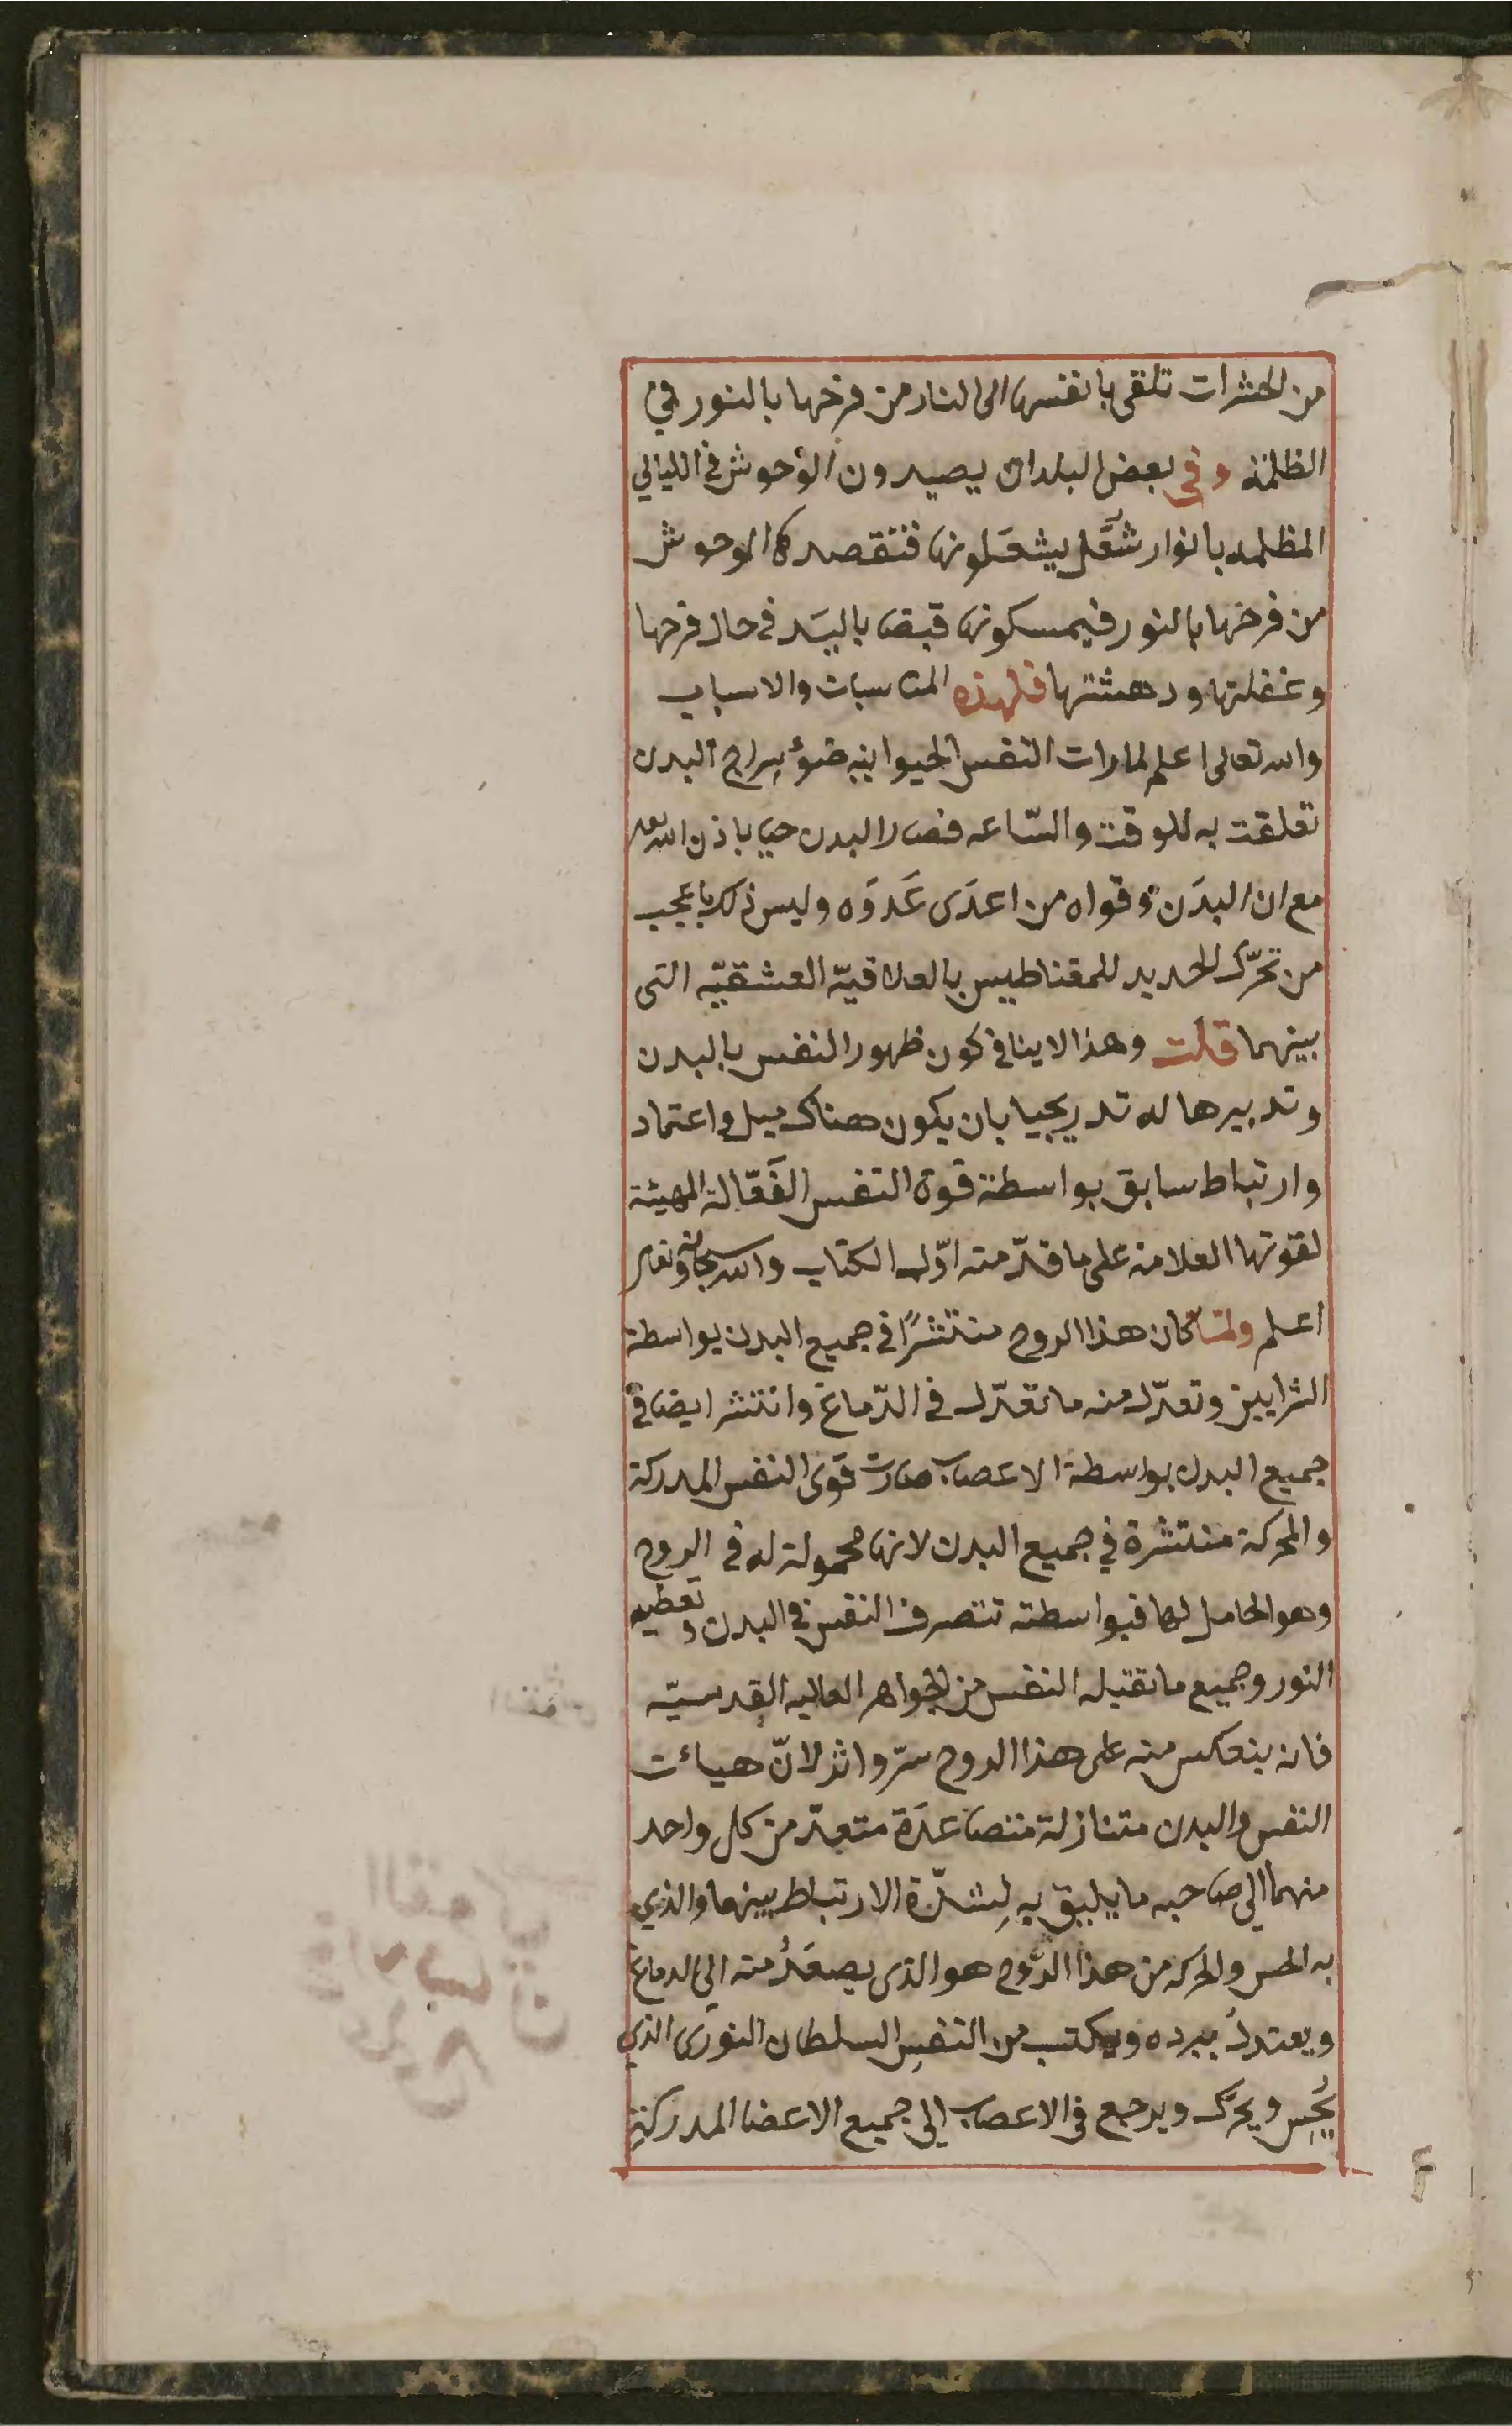 من الحشرات تلقى بانفسها الى النار من فرحها بالنور في
الظلمة وفي بعض البلدان يصيدون الوُحوش في الليالي
المظلمه بانوار شُعَّل يشعَلونها فتقصدها الوحوش
من فرحها بالنور فيمسكونها قبضا باليَد في حال فرحها
وغفلتها ودهشتها فلهذه المناسبات والاسباب
والله تعالى اعلم لما رات النفس الحيوانيه ضوُء سِراج البدن
تعلقت به للوقت والسّاعه فصار البدن حيا باذن الله تعالى
مع ان البدَن وقواه من اعدَى عَدوَه وليس ذلك باعجب
من تحرّك الحديد للمغناطيس بالعلاقيّة العشقيّه التي
بينهما قلت وهذا لا ينافي كون ظهور النفس بالبدن
وتدبيرها له تدريجيا بان يكون هناك ميل واعتماد
وارتباط سابق بواسطة قوة النفس الفَعّالة المهيئة
لقوتها العلامة على ما قدّمته اوّل الكتاب والله سبحانه وتعالى
اعلم ولمّا كان هذا الروح منتشرًا في جميع البدن بواسطة
الشرايين وتعدّل منه ما تعدّل في الدّماغ وانتشر ايضا في
جميع البدن بواسطة الاعصاب صارت قوى النفس المدركة
والمحركة منتشرة في جميع البدن لانها محمولة له في الروح
وهو الحامل لها فبواسطته تتصرف النفس في البدن وتعطيه
النور وجميع ما تقتبله النفس من الجواهر العاليه القدسيّه
فانه ينعكس منه على هذا الروح سرّ واثر لانّ هياءت
النفس والبدن متنازلة متصاعدَة متعدّ من كل واحد
منهما الى صاحبه ما يليق به لِشدّة الارتباط بينهما والذي
به الحس والحركه من هذا الرُّوح هو الذى يصعَدُ منه الي الدماغ
ويعتدلُ ببرده ويكتسب من النفسِ السلطان النورَى الذي
يُحِس ويحرّك ويرجع في الاعصاب الي جميع الاعضا المدركة